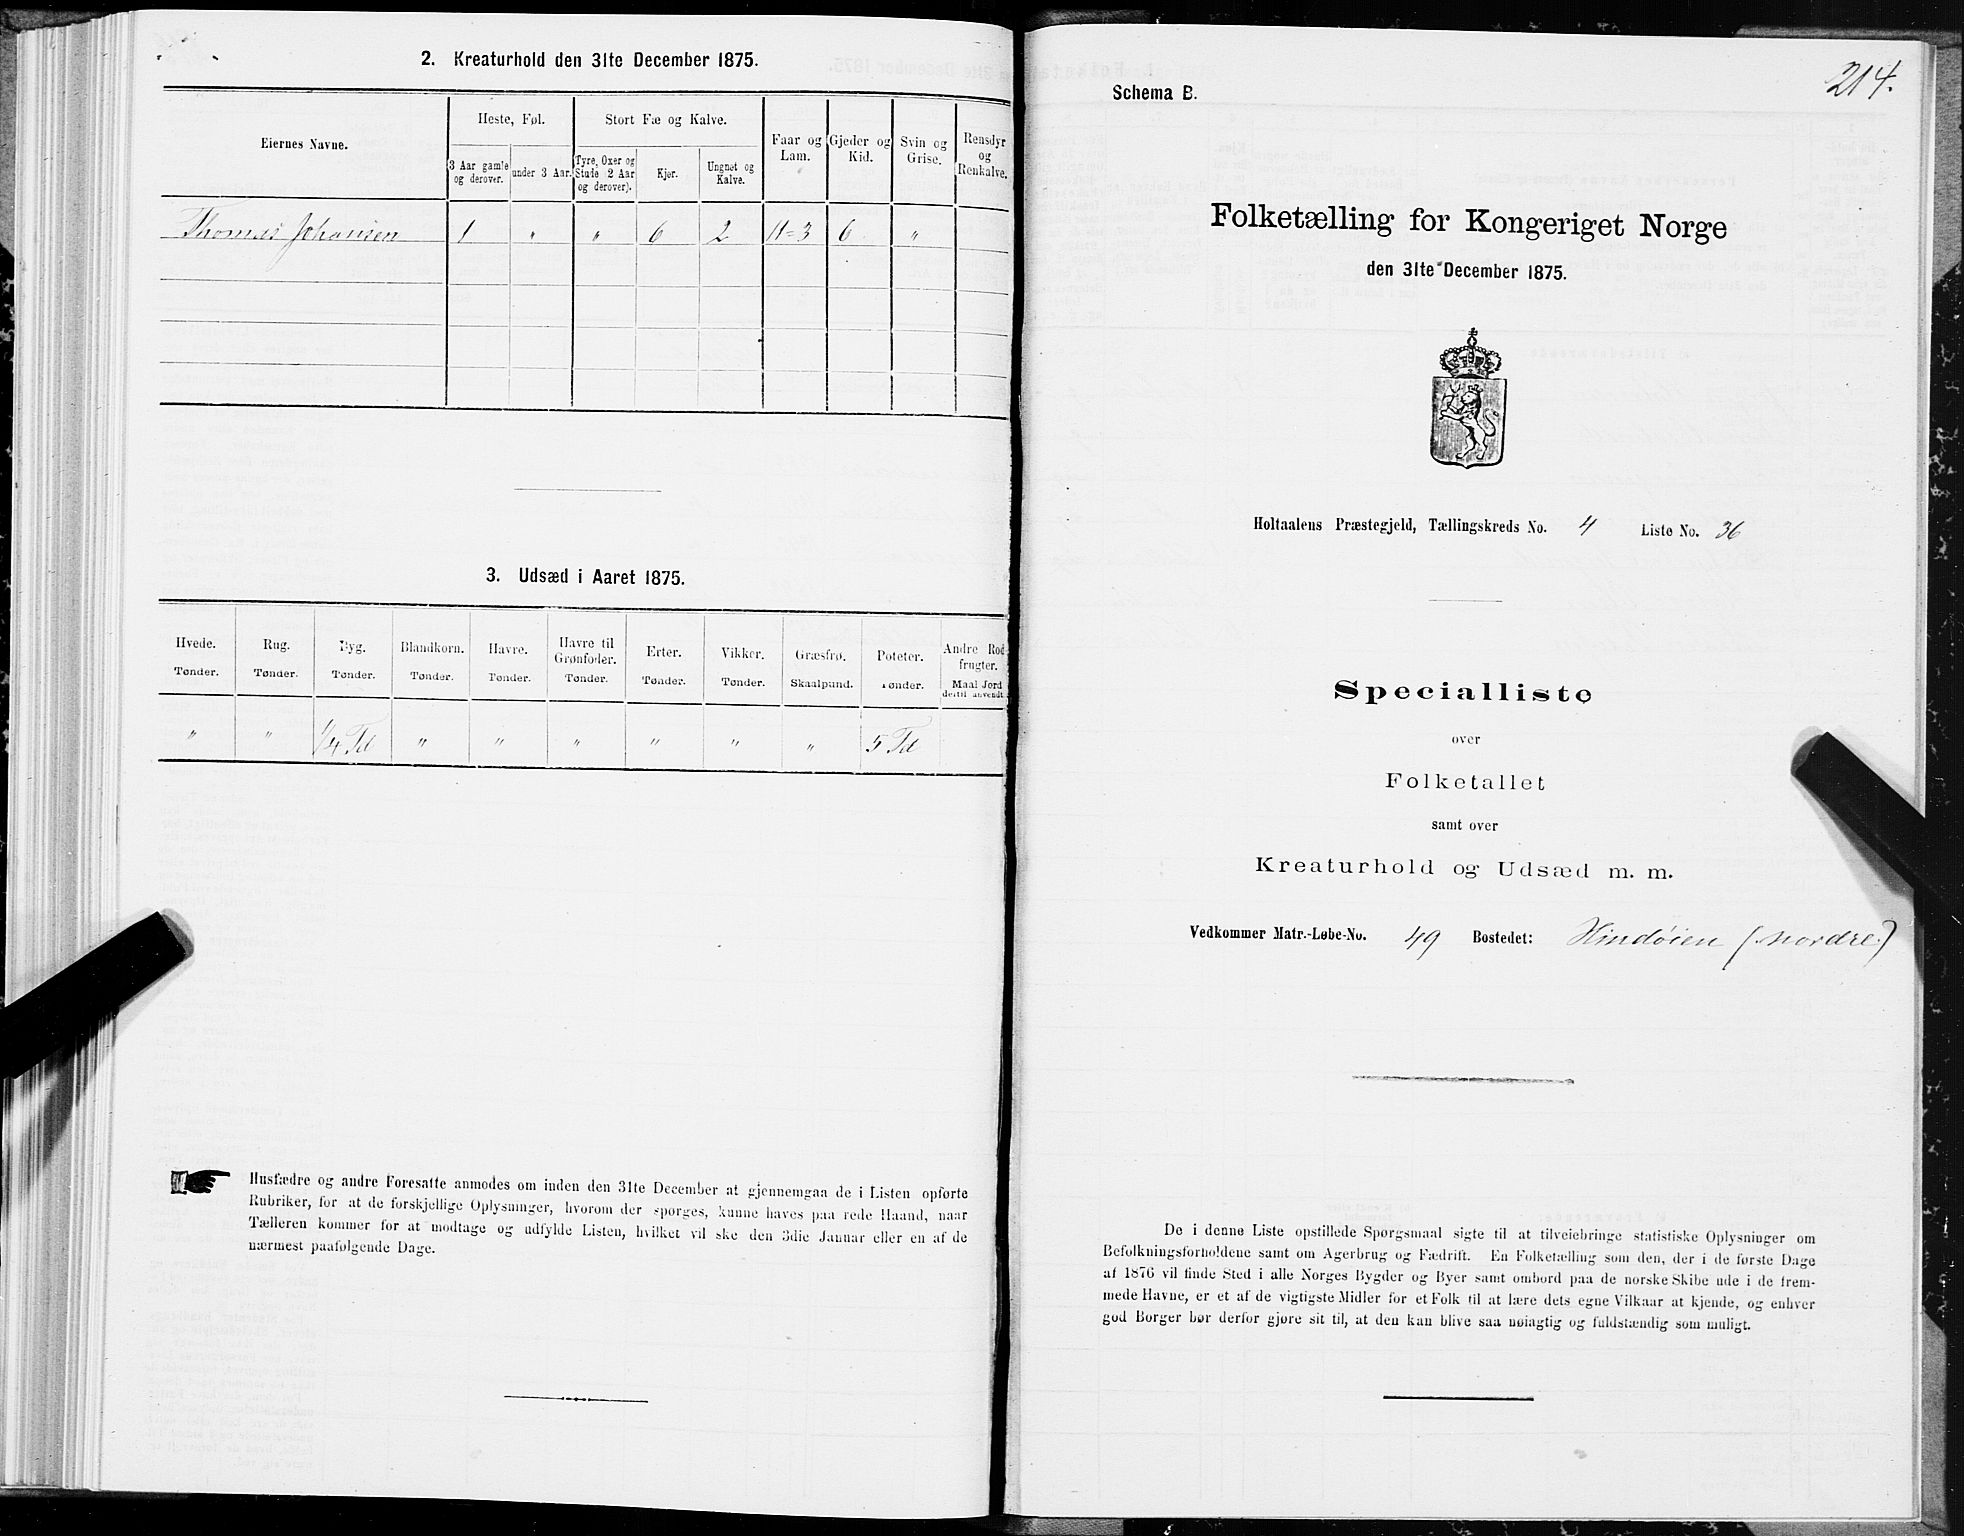 2. Kreaturhold den 31te December 1875.
Eiernes Navne.
Heste, Føl.
Stort Fæ og Kalve.
Faar og Lam.
Gjeder og Kid.
Svin og Grise.
Rensdyr og Renkalve.
3 Aar gamle og derover.
under 3 Aar.
Tyre, Oxer og Stude (2 Aar og derover).
Kjør.
Ungnet og Kalve.
Thomas Johansen 1 " " 6 2 11=3 6 "
3. Udsæd i Aaret 1875.
Hvede. Rug. Byg. Blandkorn. Havre. Havre til Grønfoder. Erter. Vikker. Græsfrø. Poteter. Andre Rodfrugter.
Tønder. Tønder. Tønder. Tønder. Tønder. Tønder. Tønder. Tønder. Skaalpund. Tønder. Maal Jord dertil anvendt.
" " 1/4 Td " " " " " " 5 Td
Husfædre og andre Foresatte anmodes om inden den 31te December at gjennemgaa de i Listen opførte
Rubriker, for at de forskjellige Oplysninger, hvorom der spørges, kunne haves paa rede Haand, naar
Tælleren kommer for at modtage og udfylde Listen, hvilket vil ske den 3die Januar eller en af de
nærmest paafølgende Dage.
214.
Schema B.
Folketælling for Kongeriget Norge
den 31te December 1875.
Holtaalens Præstegjeld, Tællingskreds No. 4 Liste No. 36
Specialliste
over
Folketallet
samt over
Kreaturhold og Udsæd m. m.
Vedkommer Matr.-Løbe-No. 49 Bostedet: Hindøien (Nordre)
De i denne Liste opstillede Spørgsmaal sigte til at tilveiebringe statistiske Oplysninger om
Befolkningsforholdene samt om Agerbrug og Fædrift. En Folketælling som den, der i de første Dage
af 1876 vil finde Sted i alle Norges Bygder og Byer samt ombord paa de norske Skibe ude i de frem-
mede Havne, er et af de vigtigste Midler for et Folk til at lære dets egne Vilkaar at kjende, og enhver
god Borger bør derfor gjøre sit til, at den kan blive saa nøiagtig og fuldstændig som muligt.